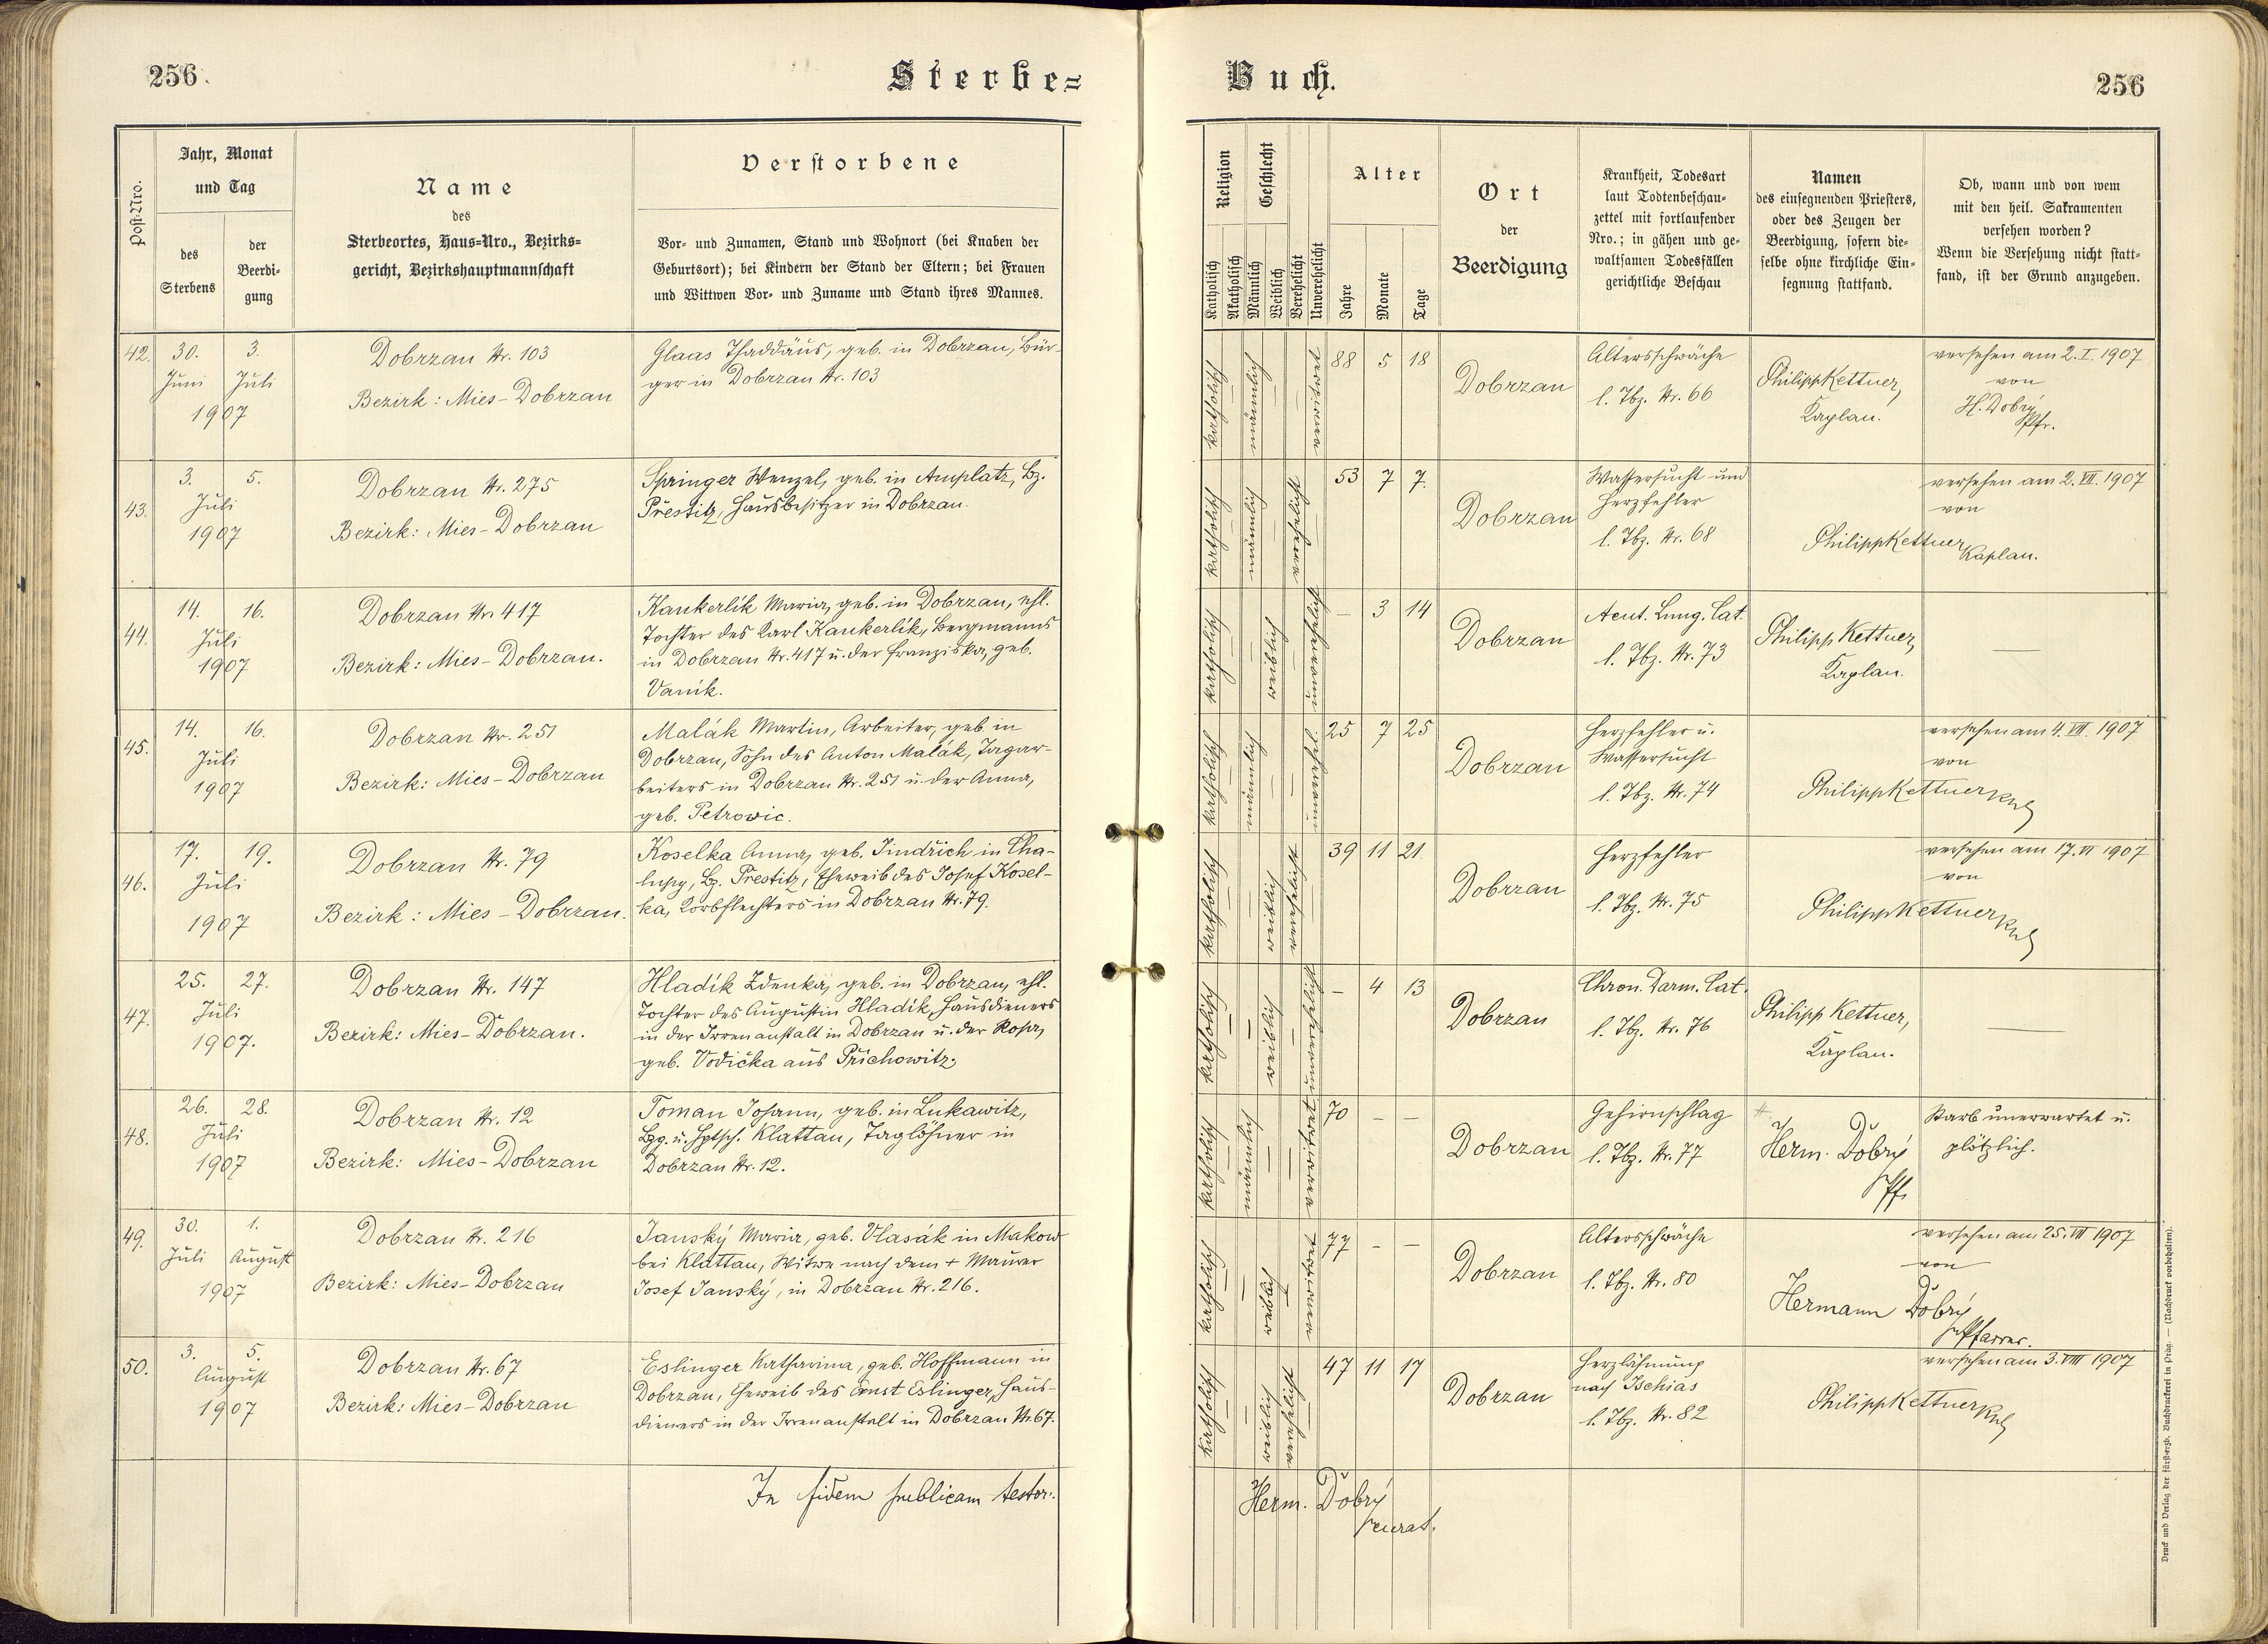 256.
Sterbe=
Jahr, Monat
und Tag
Post-Nro.
des
Sterbens
der
Beerdi-
gung
Name
des
Sterbeortes, Haus=Nro., Bezirks=
gericht, Bezirkshauptmannschaft
Verstorbene
Vor- und Zunamen, Stand und Wohnort (bei Knaben der
Geburtsort); bei Kindern der Stand der Eltern; bei Frauen
und Wittwen Vor- und Zuname und Stand ihres Mannes.
42. 30. Juni 3. Juli
1907
Dobrzan Nr. 103
Bezirk: Mies-Dobrzan
Glaas Thaddäus, geb. in Dobrzan, Bür-
ger in Dobrzan Nr. 103
43. 3. 5.
Juli
1907
Dobrzan Nr. 275
Bezirk: Mies-Dobrzan
Springer Wenzel, geb. in Amplatz, Bz.
Přestitz, Hausbesitzer in Dobrzan.
44. 14. 16.
Juli
1907
Dobrzan Nr. 417
Bezirk: Mies-Dobrzan.
Kaukerlik Maria, geb. in Dobrzan, ehl.
Tochter des Karl Kaukerlik, Bergmanns
in Dobrzan Nr. 417 u. der Franziska, geb.
Vanik.
45. 14. 16.
Juli
1907
Dobrzan Nr. 251
Bezirk: Mies-Dobrzan
Malák Martin, Arbeiter, geb. in
Dobrzan, Sohn des Anton Malák, Tagar-
beiters in Dobrzan Nr. 251 u. der Anna,
geb. Petrowic.
46. 17. 19.
Juli
1907
Dobrzan Nr. 79
Bezirk: Mies-Dobrzan.
Koselka Anna, geb. Jindřich in Cha-
lupy, Bz. Prestitz, Eheweib des Josef Kosel-
ka, Korbflechters in Dobrzan Nr. 79.
47. 25. 27.
Juli
1907.
Dobrzan Nr. 147
Bezirk: Mies-Dobrzan.
Hladík Zdenka, geb. in Dobrzan, ehl.
Tochter des Augustin Hladik, Hausdieners
in der Irrenanstalt in Dobrzan u. der Rosa,
geb. Vodička aus Přichowitz.
48. 26. 28.
Juli
1907
Dobrzan Nr. 12
Bezirk: Mies-Dobrzan
Toman Johann, geb. in Lukawitz,
Bzg. u. Hptsch. Klattau, Taglöhner in
Dobrzan Nr. 12.
49. 30. Juli 1. August
1907
Dobrzan Nr. 216
Bezirk: Mies-Dobrzan
Janský Maria, geb. Vlasák in Makow
bei Klattau, Witwe nach dem + Maurer
Josef Janský, in Dobrzan Nr. 216.
50. 3. 5.
August
1907
Dobrzan Nr. 67
Bezirk: Mies-Dobrzan
Eslinger Katharina, geb. Hoffmann in
Dobrzan, Eheweib des Ernst Eslinger, Haus-
dieners in der Irrenanstalt in Dobrzan Nr. 67.
In fidem publicam testor:
Buch.
256
Religion
Katholisch
Akatholisch
Geschlecht
Männlich
Weiblich
Verehelicht
Unverehelicht
Alter
Jahre
Monate
Tage
Ort
der
Beerdigung
Krankheit, Todesart
laut Todtenbeschau-
zettel mit fortlaufender
Nro.; in gähen und ge-
waltsamen Todesfällen
gerichtliche Beschau
Namen
des einsegnenden Priesters,
oder des Zeugen der
Beerdigung, sofern die-
selbe ohne kirchliche Ein-
segnung stattfand.
Ob, wann und von wem
mit den heil. Sakramenten
versehen worden?
Wenn die Versehung nicht statt-
fand, ist der Grund anzugeben.
katholisch — männlich — — verwitwet 88 5 18
Dobrzan
Altersschwäche
l. Tbz. Nr. 66
Philipp Kettner,
Kaplan.
versehen am 2. I. 1907
von
H. Dobrý
Pfr.
katholisch — männlich — verehelicht — 53 7 7.
Dobrzan
Wassersucht und
Herzfehler
l. Tbz. Nr. 68
versehen am 2. VII. 1907
von
Philipp Kettner
Kaplan.
katholisch — — weiblich — unverehelicht — 3 14
Dobrzan
Acut. Lung. Cat.
l. Tbz. Nr. 73
Philipp Kettner,
Kaplan.
—
katholisch — männlich — — unverehel. 25 7 25
Dobrzan
Herzfehler u.
Wassersucht
l. Tbz. Nr. 74
versehen am 4. VII. 1907
von
Philipp Kettner Kpl
katholisch — — weiblich verehelicht — 39 11 21
Dobrzan
Herzfehler
l. Tbz. Nr. 75
versehen am 17. VI 1907
von
Philipp Kettner Kpl
katholisch — — weiblich — unverehelicht — 4 13
Dobrzan
Chron. Darm. Cat.
l. Tbz. Nr. 76
Philipp Kettner,
Kaplan.
—
katholisch — männlich — — verwitwet 70 — —
Dobrzan
Gehirnschlag
l. Tbz. Nr. 77
Herm. Dobrý
Pf.
Starb unerwartet u.
plötzlich.
katholisch — — weiblich — verwitwet 77 — —
Dobrzan
Altersschwäche
l. Tbz. Nr. 80
versehen am 25. VII 1907
von
Hermann Dobrý
Pfarrer.
katholisch — — weiblich verehelicht — 47 11 17
Dobrzan
Herzlähmung
nach Ischias
l. Tbz. Nr. 82
versehen am 3. VIII 1907
Philipp Kettner Kpl
Herm. Dobrý
curat.
Druck und Verlag der fürsterzb. Buchdruckerei in Prag. — (Nachdruck vorbehalten).